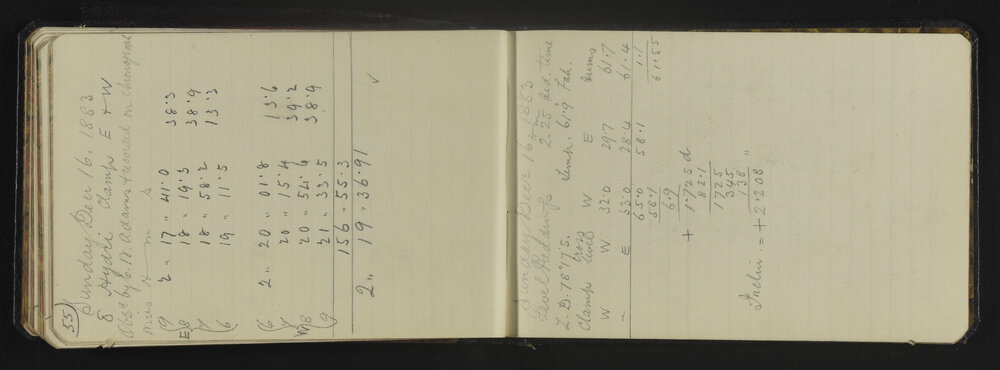 55
Sunday Dec 16. 1883
δ Hydri Clamp E & W
Obsd by C. W. Adams & recorded on chronograph
Wires h m s
9 2 " 17 " 41.0 38.3
E 8 18 " 19.3 38.9
7 18 " 58.2 13.3
6 19 " 11.5
6 2 " 20 " 01.8 13.6
7 20 " 15.4 39.2
W 8 20 " 54.6 38.9
9 21 " 33.5
156 " 55.3
2 " 19 " 36.91 ✓
Sunday Decr 16. 1883
Level Readings 2.25 Sid time
L.D. 7877 S. Temp. 61.9 Fah.
Clamp Cross Level W E Sums
W W 32.0 29.7 61.7
– E 33.0 28.4 61.4
65.0 58.1 1.1
58.1 61.55
6.9
+ 1.725 d
82.1
1725
345
138
Inclin. = + 2.208 "